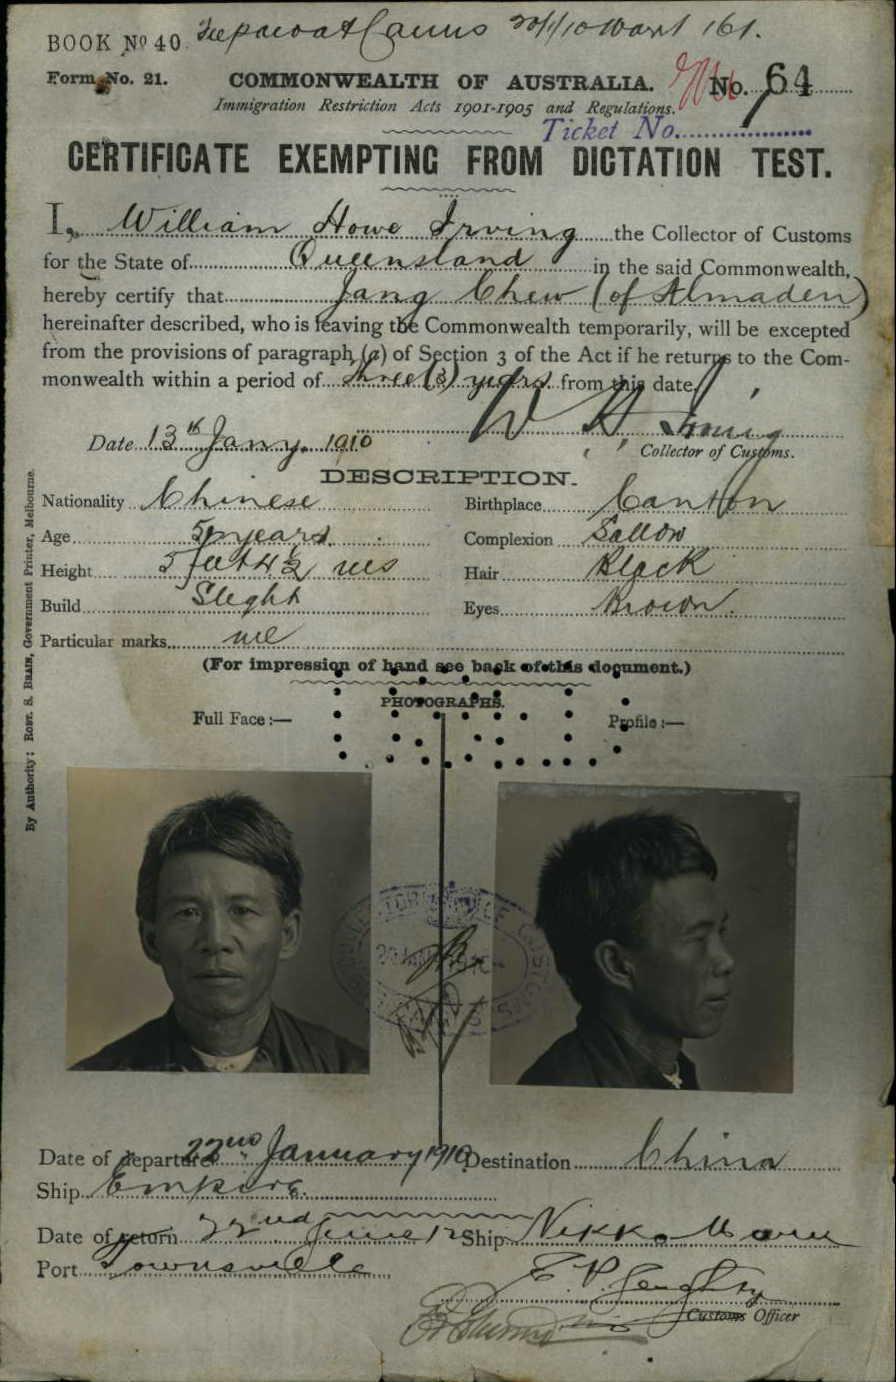 BOOK No 40.
20/1/10 161.
Form No. 21. COMMONWEALTH OF AUSTRALIA. No. 64
Immigration Restriction Acts 1901-1905 and Regulations.
Ticket No.
CERTIFICATE EXEMPTING FROM DICTATION TEST.
I, William Howe Irving the Collector of Customs
for the State of Queensland in the said Commonwealth,
hereby certify that Jang Chew (of Almaden)
hereinafter described, who is leaving the Commonwealth temporarily, will be excepted
from the provisions of paragraph (a) of Section 3 of the Act if he returns to the Com-
monwealth within a period of three (3) years from this date.
W H Irving
Date 13th Jany. 1910 Collector of Customs.
DESCRIPTION.
Nationality Chinese Birthplace Canton
Age years. Complexion Sallow
Height 5 feet 4½ ins Hair Black
Build Slight Eyes Brown.
Particular marks
(For impression of hand see back of this document.)
PHOTOGRAPHS.
Full Face :— Profile :—
By Authority: ROBT. S. BRAIN, Government Printer, Melbourne.
Date of departure 22nd January 1910 Destination China
Ship Empire
Date of return 22nd June 12 Ship Nikko Maru
Port Townsville
Customs Officer